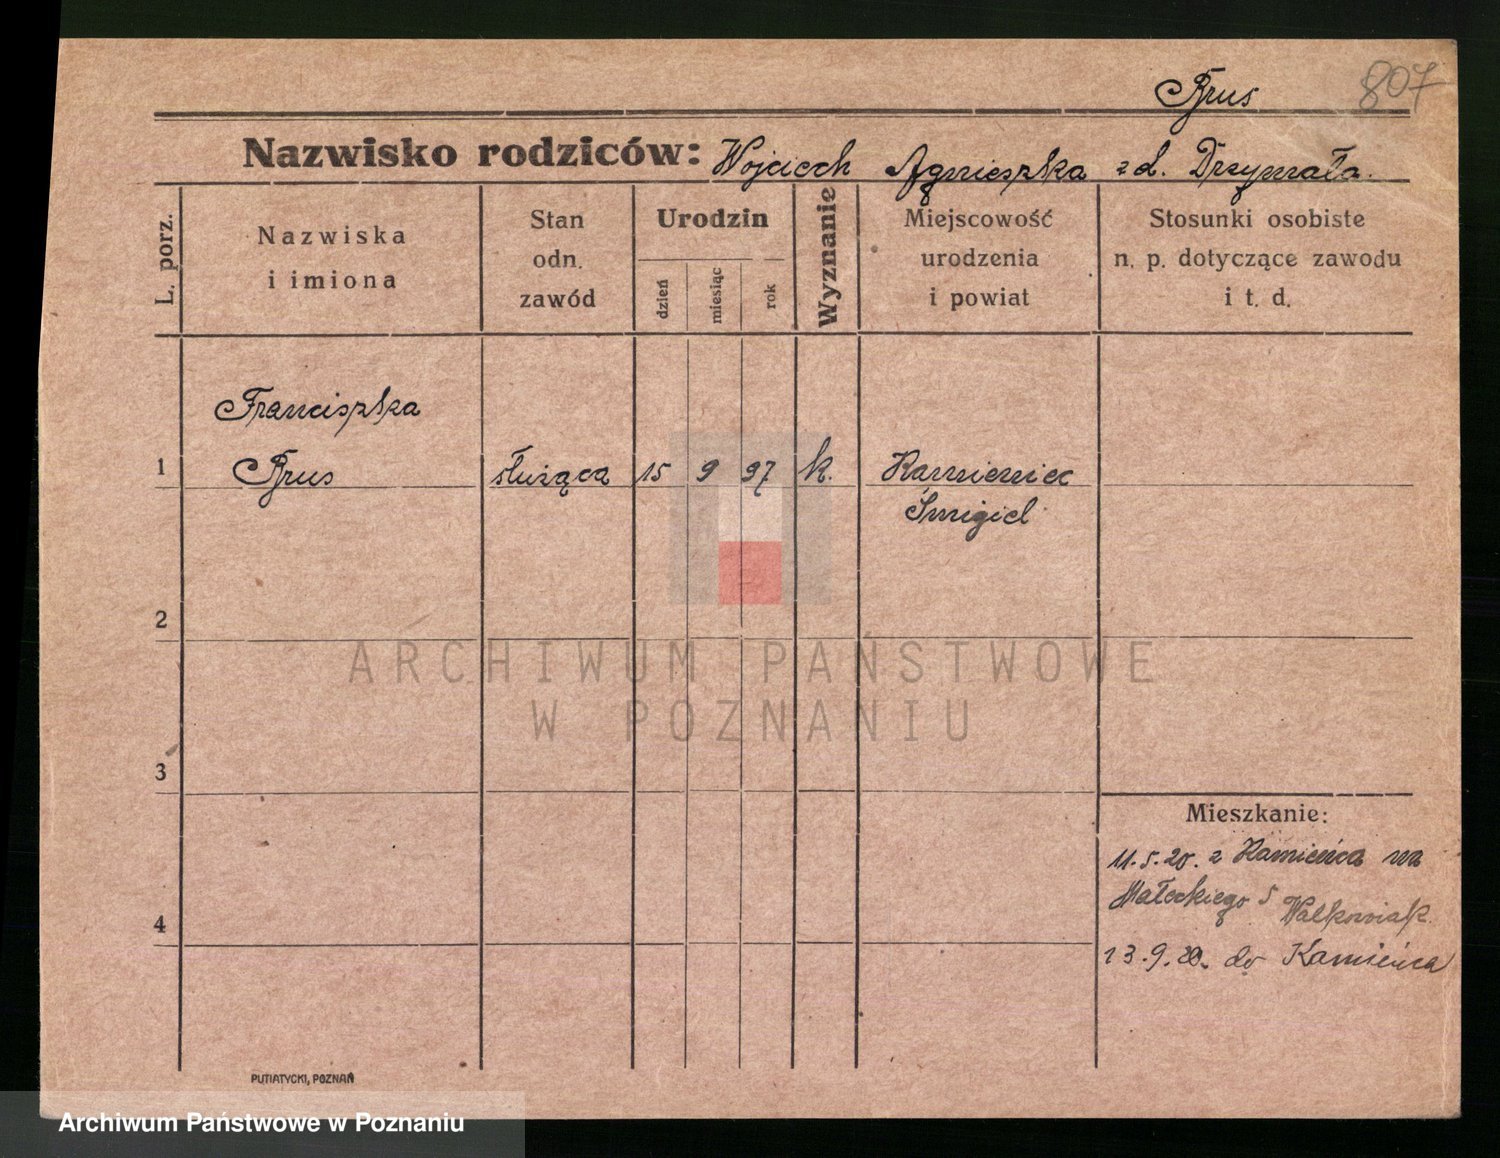 807
Brus
Nazwisko rodziców: Wojciech Agnieszka zd. Drzymała.
L. porz.
Nazwiska
i imiona
Stan
odn.
zawód
Urodzin
dzień
miesiąc
rok
Wyznanie
Miejscowość
urodzenia
i powiat
Stosunki osobiste
n. p. dotyczące zawodu
i t. d.
Franciszka
1 Brus służąca 15 9 97 k. Kamieniec
Śmigiel
2
ARCHIWUM PAŃSTWOWE
W POZNANIU
3
Mieszkanie:
11.5.20. z Kamieńca na
Małeckiego 5 Walkowiak.
4
13.9.20. do Kamieńca
PUTIATYCKI, POZNAŃ
Archiwum Państwowe w Poznaniu